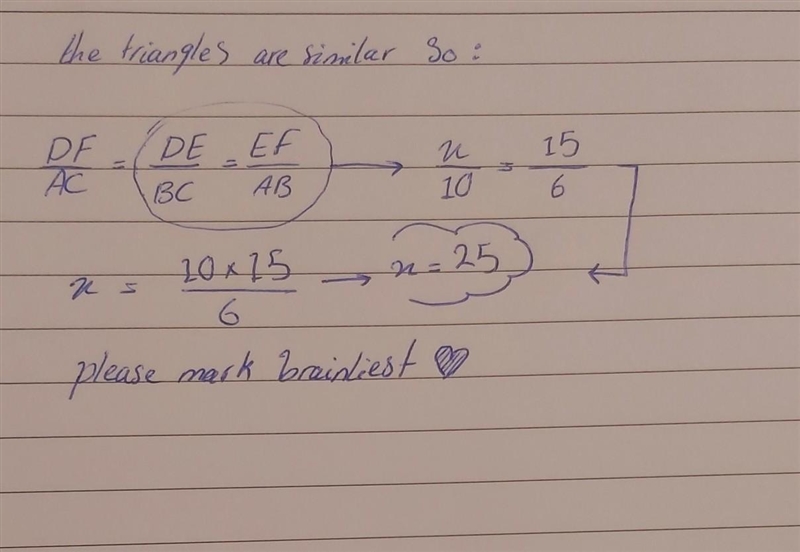 the triangles are similar so:
DF/AC = DE/BC = EF/AB → x/10 = 15/6
x = 10×15/6 → x = 25
please mark brainliest ♥